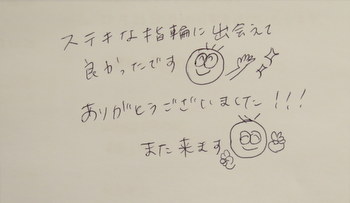 ステキな指輪に出会えて
良かったです
ありがとうございました!!!
また来ます